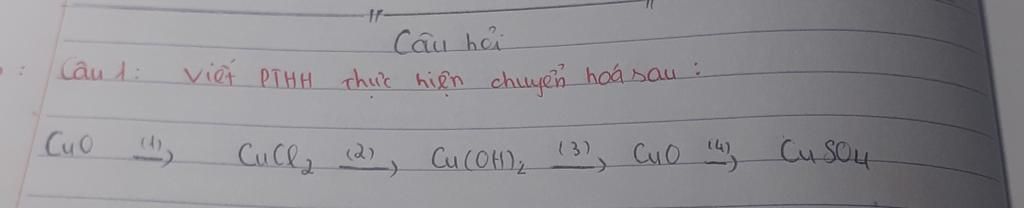 Câu hỏi
Câu 1: Viết PTHH thực hiện chuyển hoá sau:
CuO (1)→ CuCl₂ (2)→ Cu(OH)₂ (3)→ CuO (4)→ CuSO₄